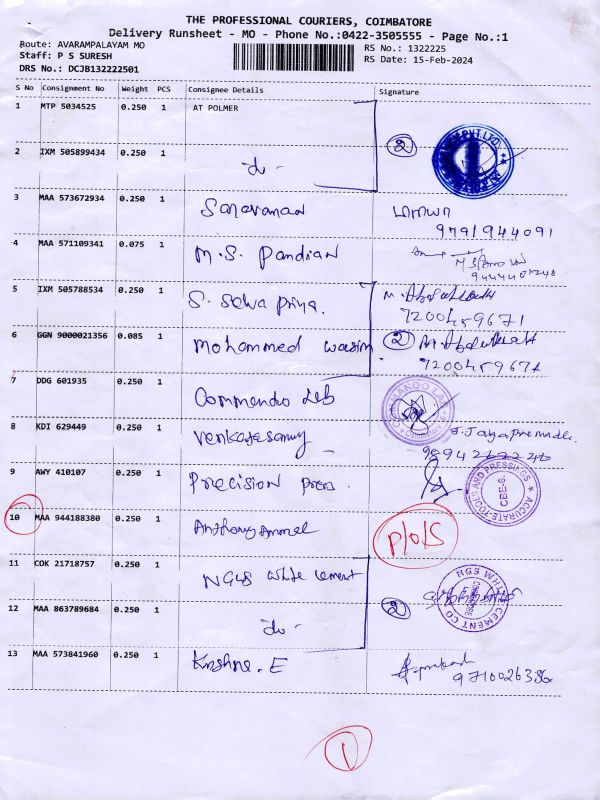 THE PROFESSIONAL COURIERS, COIMBATORE
Delivery Runsheet - MO - Phone No.:0422-3505555 - Page No.:1
Route: AVARAMPALAYAM MO
RS No.: 1322225
Staff: P S SURESH
RS Date: 15-Feb-2024
DRS No.: DCJB132222501
S No Consignment No Weight PCS Consignee Details Signature
1 MTP 5034525 0.250 1 AT POLMER
2 IXM 505899434 0.250 1 -do- 2
3 MAA 573672934 0.250 1 Saravanan
9791944091
4 MAA 571109341 0.075 1 M.S. Pandian
5 IXM 505788534 0.250 1 S. Selva Priya.
7200459671
6 GGN 9000021356 0.085 1 Mohammed wasim 2
7 DDG 601935 0.250 1 Commando Lab
8 KDI 629449 0.250 1 Venkatesamy
9 AWY 410107 0.250 1 Precision Press
ACCURATE TOOLS AND PRESSINGS CBE-6.
10 MAA 944188380 0.250 1 Anthony Ammal
P/O/S
11 COK 21718757 0.250 1 NGS White Cement
NGS WHITE CEMENT CO
12 MAA 863789684 0.250 1 -do- 2
13 MAA 573841960 0.250 1 Krishna. E
9710026386
1